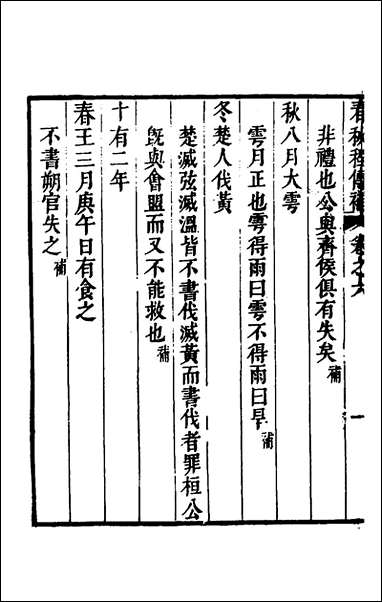 春秋程傳補 卷之六 一
非禮也公與齊侯俱有失矣補
秋八月大雩
雩月正也雩得雨曰雩不得雨曰旱補
冬楚人伐黃
楚滅弦滅溫皆不書伐滅黃而書伐者罪桓公
旣與會盟而又不能救也補
十有二年
春王三月庚午日有食之
不書朔官失之補